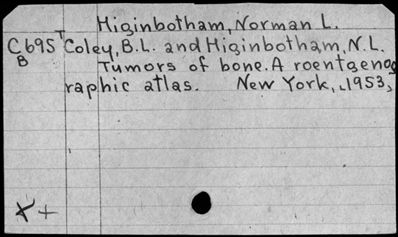 Higinbotham, Norman L.
C695T Coley, B.L. and Higinbotham, N.L.
B Tumors of bone. A roentgenog
raphic atlas. New York, 1953,
X +